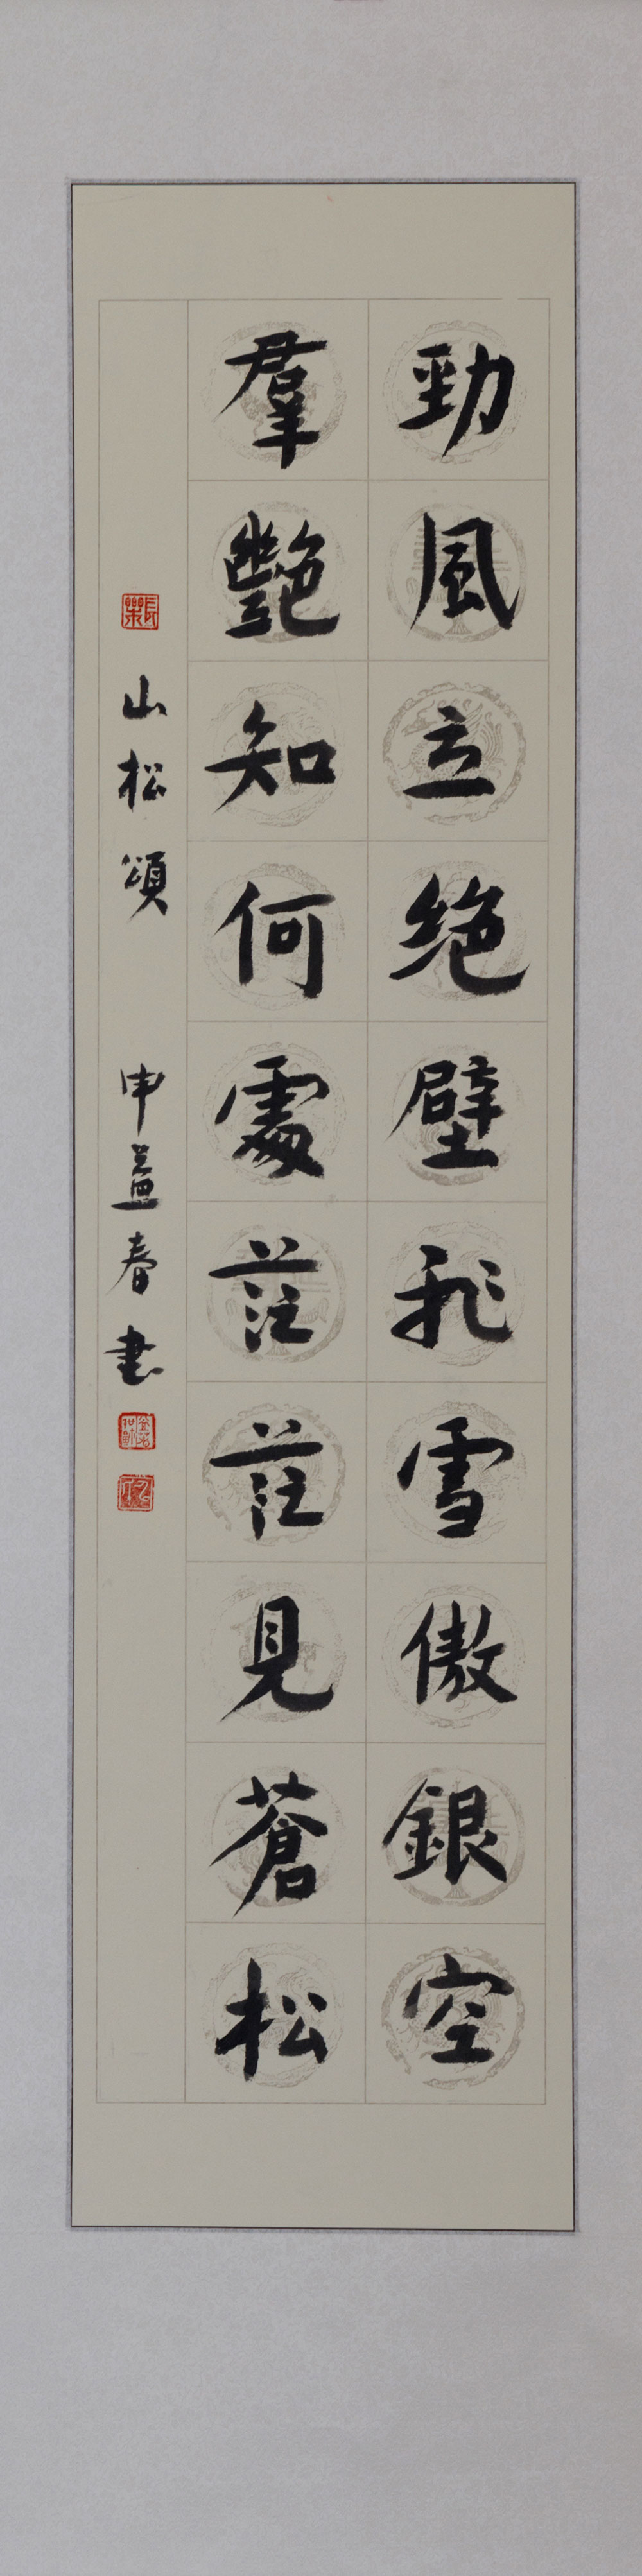 勁風立絕壁飛雪傲銀空
羣艷知何處茫茫見蒼松
長樂
山松頌
申益春書